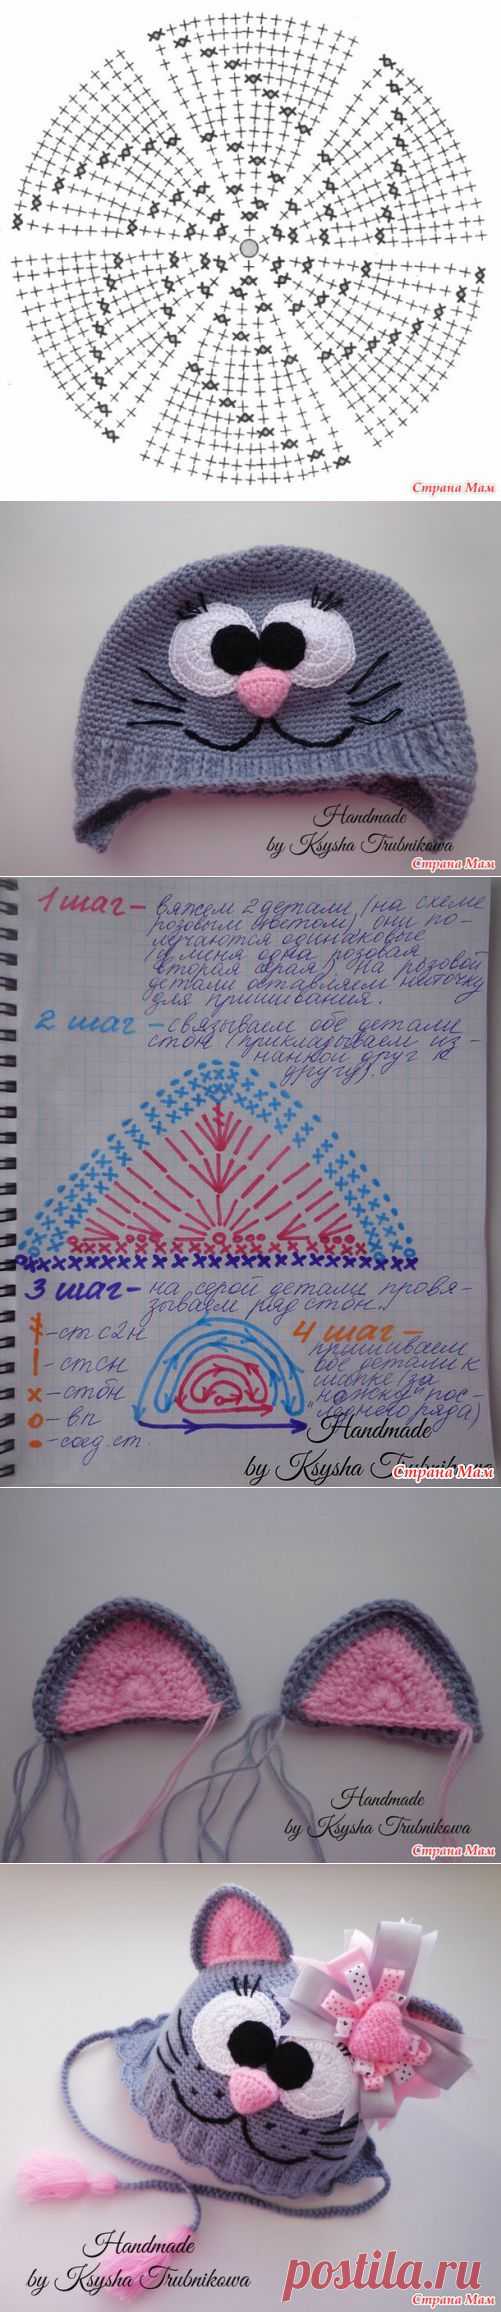 Страна Мам
Handmade
by Ksysha Trubnikowa
Страна Мам
1 шаг – вяжем 2 детали (на схеме
розовым цветом), они по-
лучаются одинаковые
(у меня одна розовая
вторая серая). На розовой
детали оставляем ниточку
для пришивания.
2 шаг – связываем обе детали
стбн (прикладываем из-
нанкой друг к
другу).
3 шаг – на серой детали провя-
зываем ряд стбн.
– ст с2н
– стсн
– стбн
– вп
– соед.ст.
4 шаг –
пришиваем
обе детали к
шапке (за
"ножку" пос-
леднего ряда)
Handmade
by Ksysha Trubnikowa
Страна Мам
Handmade
by Ksysha Trubnikowa
Страна Мам
Handmade
by Ksysha Trubnikowa
postila.ru
Страна Мам